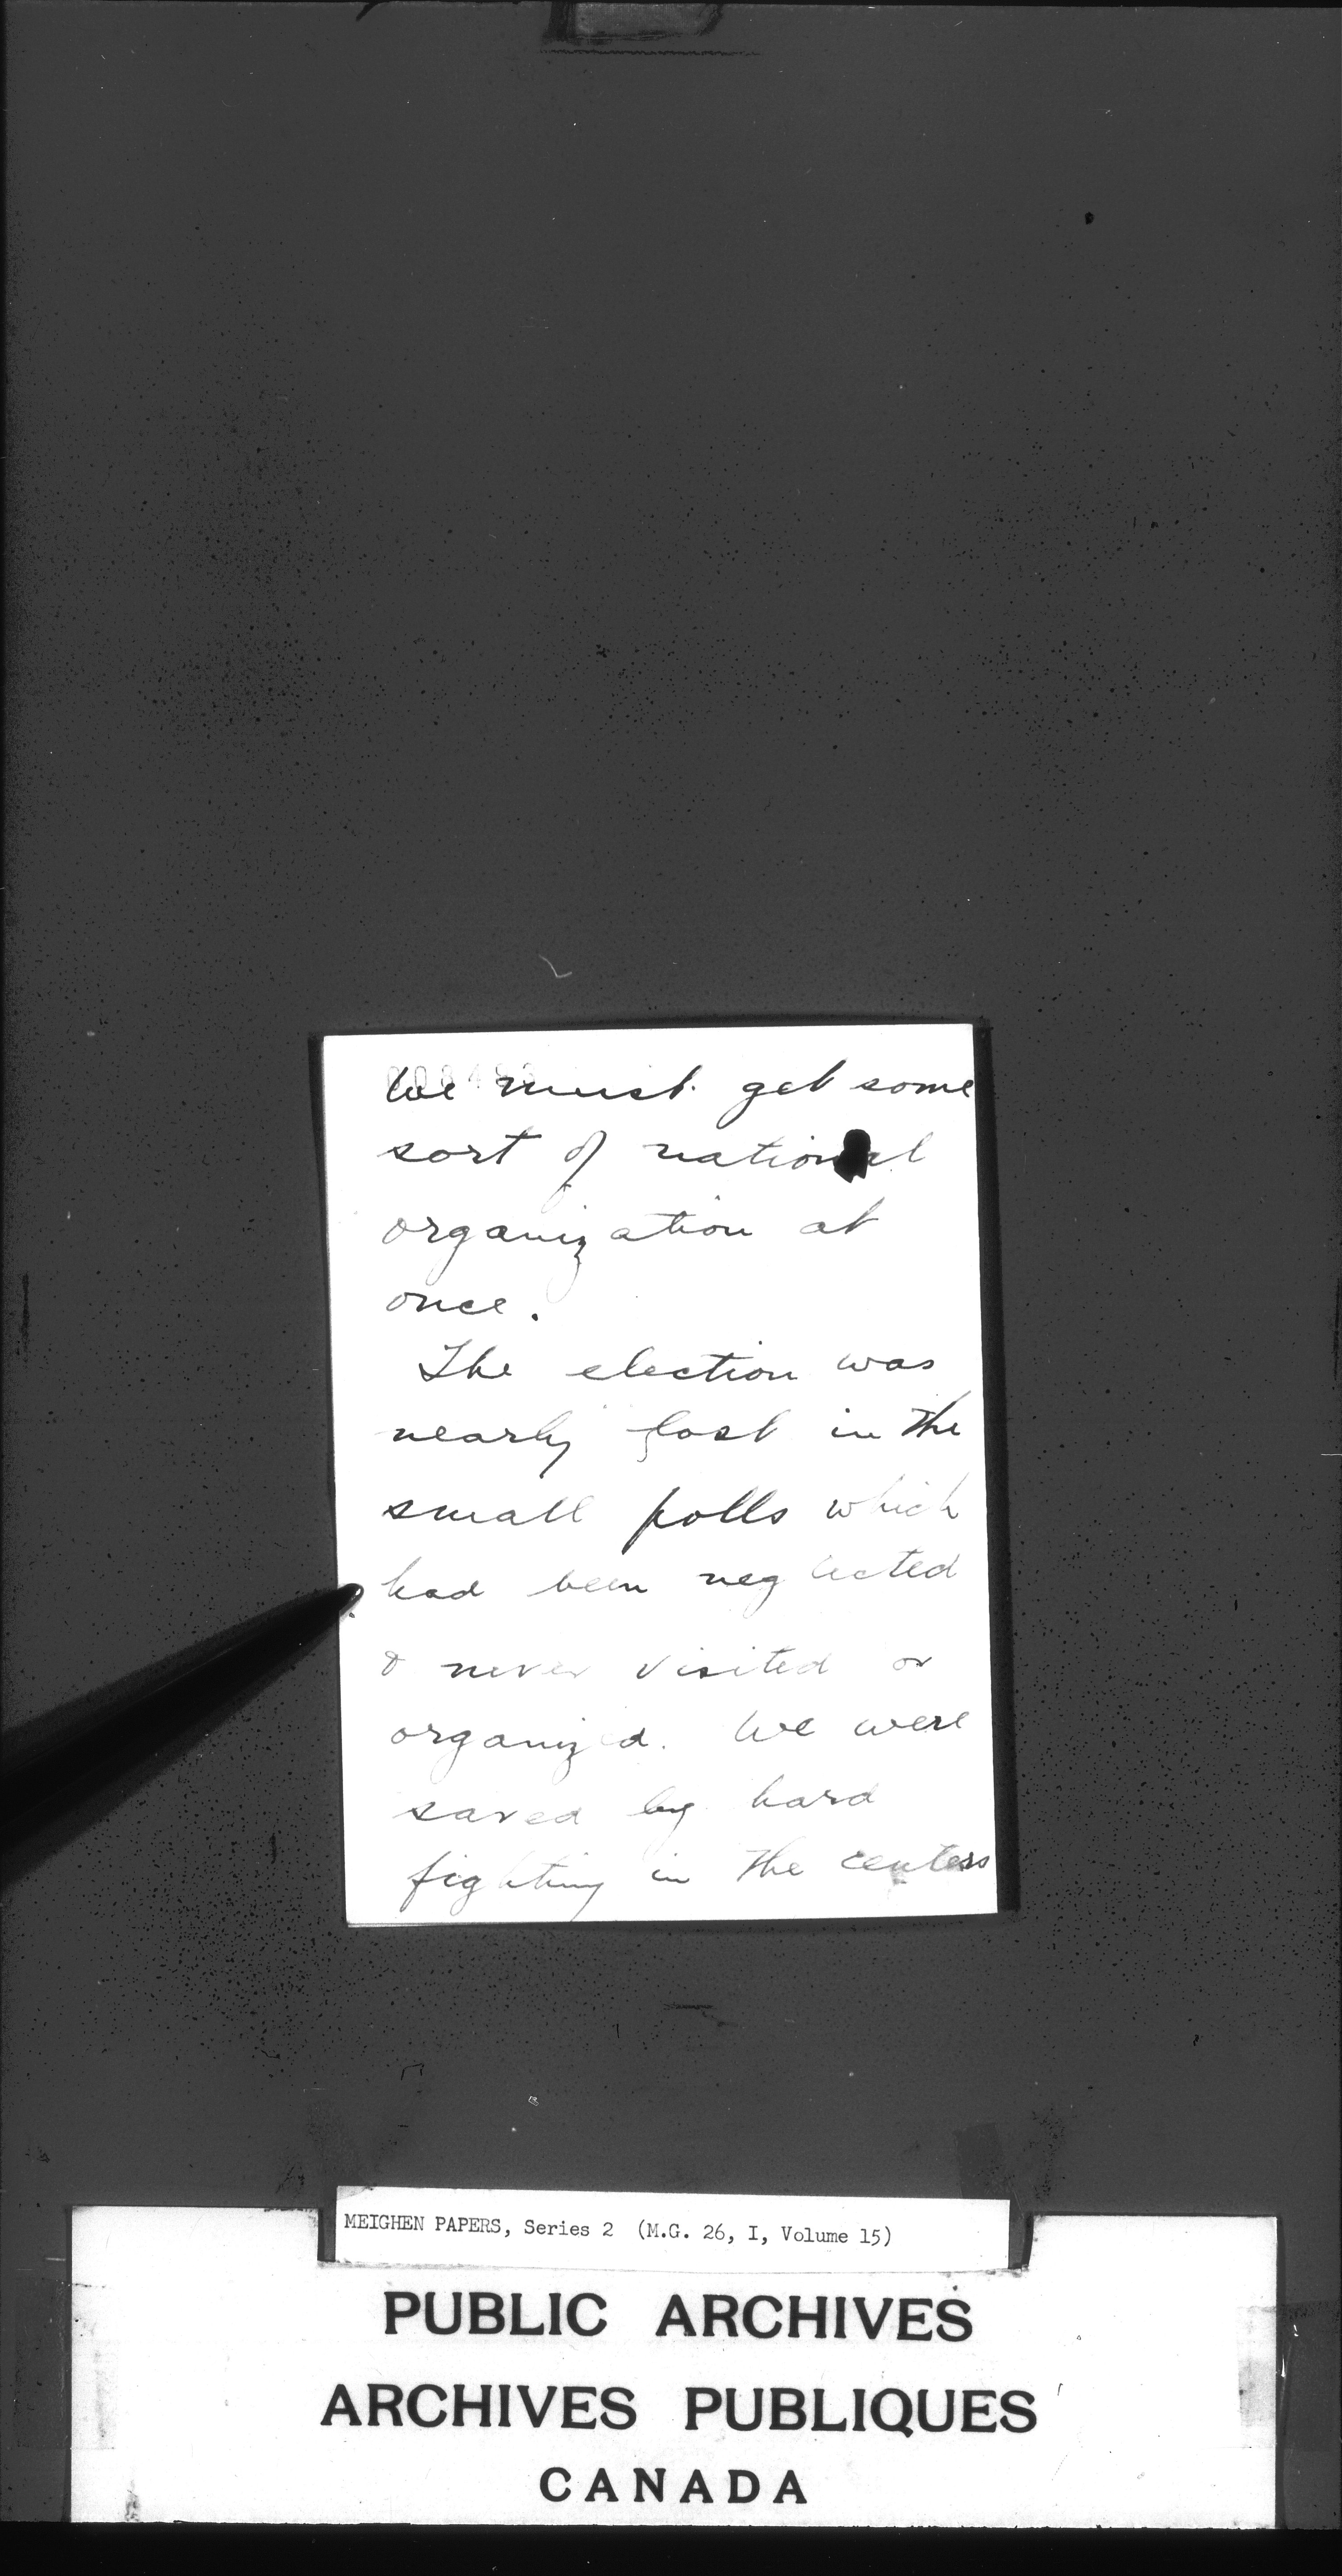 We must get some
sort of national
organization at
once.
The election was
nearly lost in the
small polls which
had been neglected
& never visited or
organized. We were
saved by hard
fighting in the centers
MEIGHEN PAPERS, Series 2 (M.G. 26, I, Volume 15)
PUBLIC ARCHIVES
ARCHIVES PUBLIQUES
CANADA